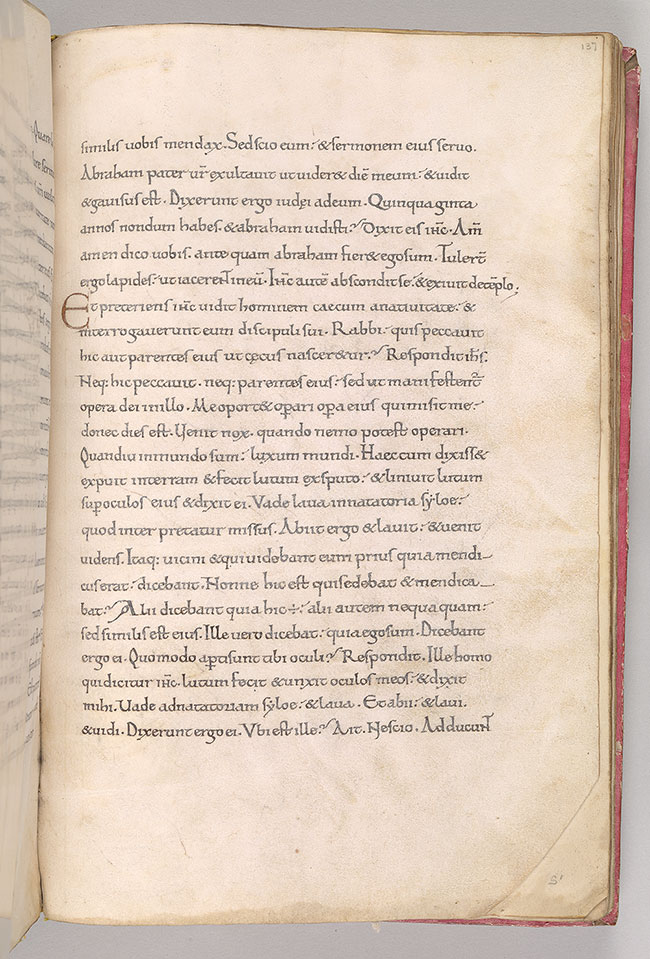 137
similis uobis mendax. Sed scio eum: & sermonem eius seruo.
Abraham pater ur̄ exultauit ut uider& diē meum: & uidit
& gauisus est. Dixerunt ergo iudęi ad eum. Quinquaginta
annos nondum habes. & abraham uidisti? Dixit eis ihc̄. Am̄
amen dico uobis. ante quam abraham fier& ego sum. Tuler̄t
ergo lapides: ut iacerent in eū. Ihc̄ autē abscondit se: & exiuit de tēplo.
Et preteriens ihc̄ uidit hominem caecum a natiuitate: &
interrogauerunt eum discipuli sui. Rabbi: quis peccauit
hic aut parentes eius ut cęcus nascer&ur? Respondit ih̄s.
Neq: hic peccauit. neq: parentes eius: sed ut manifestent̄
opera dei in illo. Me oport& oꝑari oꝑa eius qui misit me:
donec dies est. Uenit nox. quando nemo potest operari.
Quandiu in mundo sum: lux sum mundi. Haec cum dixiss&
expuit in terram & fecit lutum ex sputo: & liniuit lutum
suꝑ oculos eius & dixit ei. Vade laua in natatoria syloe:
quod interpretatur missus. Abiit ergo & lauit: & uenit
uidens. Itaq: uicini & qui uidebant eum prius quia mendi-
cus erat: dicebant. Nonne hic est qui sedebat & mendica-
bat? Alii dicebant quia hic ÷: alii autem nequaquam:
sed similis est eius. Ille uero dicebat: quia ego sum. Dicebant
ergo ei. Quomodo aꝑti sunt tibi oculi? Respondit. Ille homo
qui dicitur ihc̄. lutum fecit & unxit oculos meos: & dixit
mihi. Uade ad natatoriam syloe: & laua. Et abii: & laui.
& uidi. Dixerunt ergo ei. Vbi est ille? Ait. Nescio. Adducunt